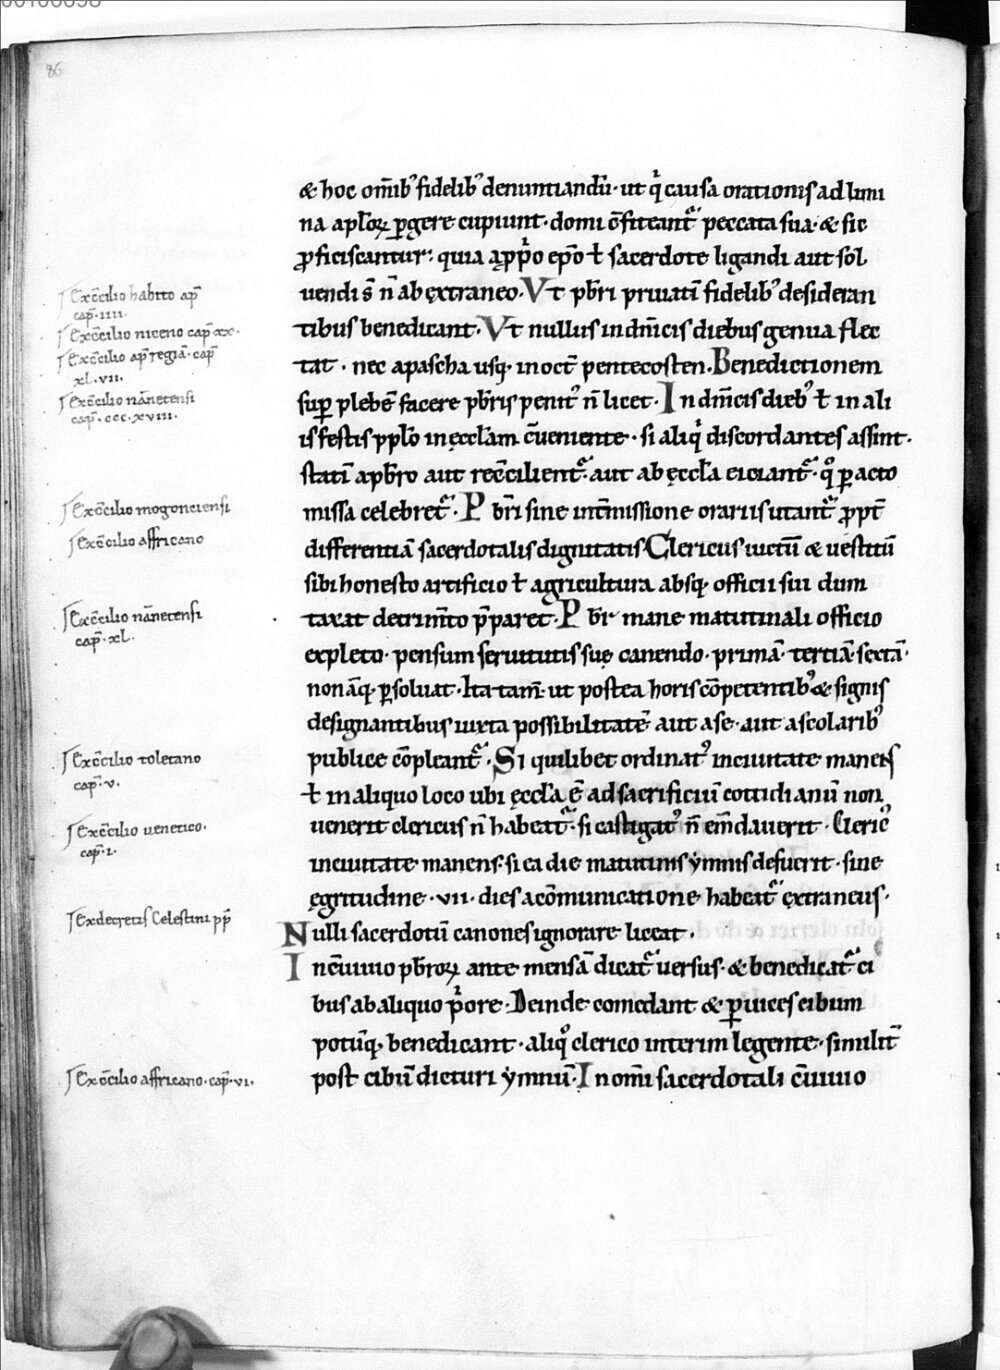 86
& hoc om̅ib᷒ fidelib᷒ denuntiandū· ut qͥ causa orationis ad limi
na aplo̅ꝝ ꝑgere cupiunt· domi c̅fiteant᷑ peccata sua· & sic
ꝓficiscantur· quia a ꝓpͥo ep̅o ł sacerdote ligandi aut sol
uendi s̅ n̅ ab ęxtraneo· Vt pb̅ri priuati̅ fidelib᷒ desideran
tibus benedicant· Vt nullus in dn̅icis diebus genua flec
tat· nec a pascha usq; in oct̅ pentecosten· Benedictionem
suꝑ plebe̅ facere pb̅ris penit᷒ n̅ licet· In dn̅icis dieb᷒ ł in ali
is festis pplo̅ in ęccl̅am c̅ueniente· si aliqͥ discordantes assint·
stati̅ a pb̅ro aut rec̅cilient᷑· aut ab ęccl̅a eiciant᷑· qͦ ꝑacto
missa celebret᷑· Pb̅ri sine int̅missione orariis utant᷑ ꝓpt̅
differentia̅ sacerdotalis dignitatis Clericus uictu̅ & uestitu̅
sibi honesto artificio ł agricultura absq; officii sui dum
taxat detrim̅to p̅paret· Pb̅r mane matutinali officio
expleto· pensum seruitutis suę canendo· prima̅· tertia̅· sexta̅·
nonā q; ꝑsoluat· Ita tam̅· ut postea horis co̅petentib᷒ & signis
designantibus iuxta possibilitate̅ aut a se· aut a scolarib᷒
publice co̅pleant᷑· Si quilibet ordinat᷒ in ciuitate manens
ł in aliquo loco ubi ęccl̅a e̅ ad sacrificiu̅ cottidianu̅ non
uenerit clericus n̅ habeat᷑· si castigat᷒ n̅ em̅dauerit· Cleric᷒
in ciuitate manens· si ea die matutinis ẏmnis defuerit· sine
ęgritudine· vii· dies a co̅municatione habeat᷑ ęxtraneus·
Nulli sacerdotu̅ canones ignorare liceat·
In c̅uiuio pb̅roꝝ ante mensa̅ dicat᷑ uersus· & benedicat᷑ ci
bus ab aliquo pͥore· Deinde comedant & ꝑ uices cibum
potu̅q; benedicant· aliqͦ clerico interim legente· similit̅
post cibu̅ dicturi ẏmnu̅· In nom̅i sacerdotali c̅uiuio
Ex c̅cilio habito ap̅
cap̅· iiii·
Ex c̅cilio niceno cap̅ xx·
Ex c̅cilio ap̅ regia̅· cap̅
xl· vii·
Ex c̅cilio na̅netensi
cap̅· ccc· xviii·
Ex c̅cilio mogonciensi
Ex c̅cilio affricano
Ex c̅cilio na̅netensi
cap̅· xl·
Ex c̅cilio toletano
cap̅· v·
Ex c̅cilio uenetico·
cap̅· i·
Ex decretis Celestini pp̅
Ex c̅cilio affricano· cap̅· vi·